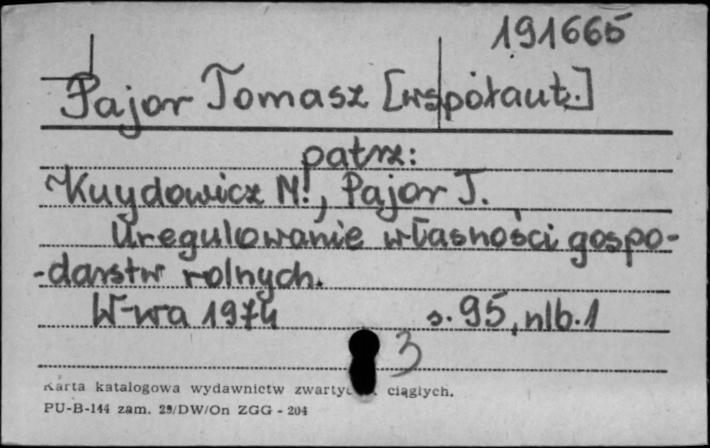 191665
Pajor Tomasz [współaut.]
patrz:
Kuydowicz M., Pajor T.
Uregulowanie własności gospo-
-darstw rolnych.
W-wa 1974 s. 95, nlb. 1
3
Karta katalogowa wydawnictw ciągłych.
PU-B-144 zam. 29/DW/On ZGG - 204